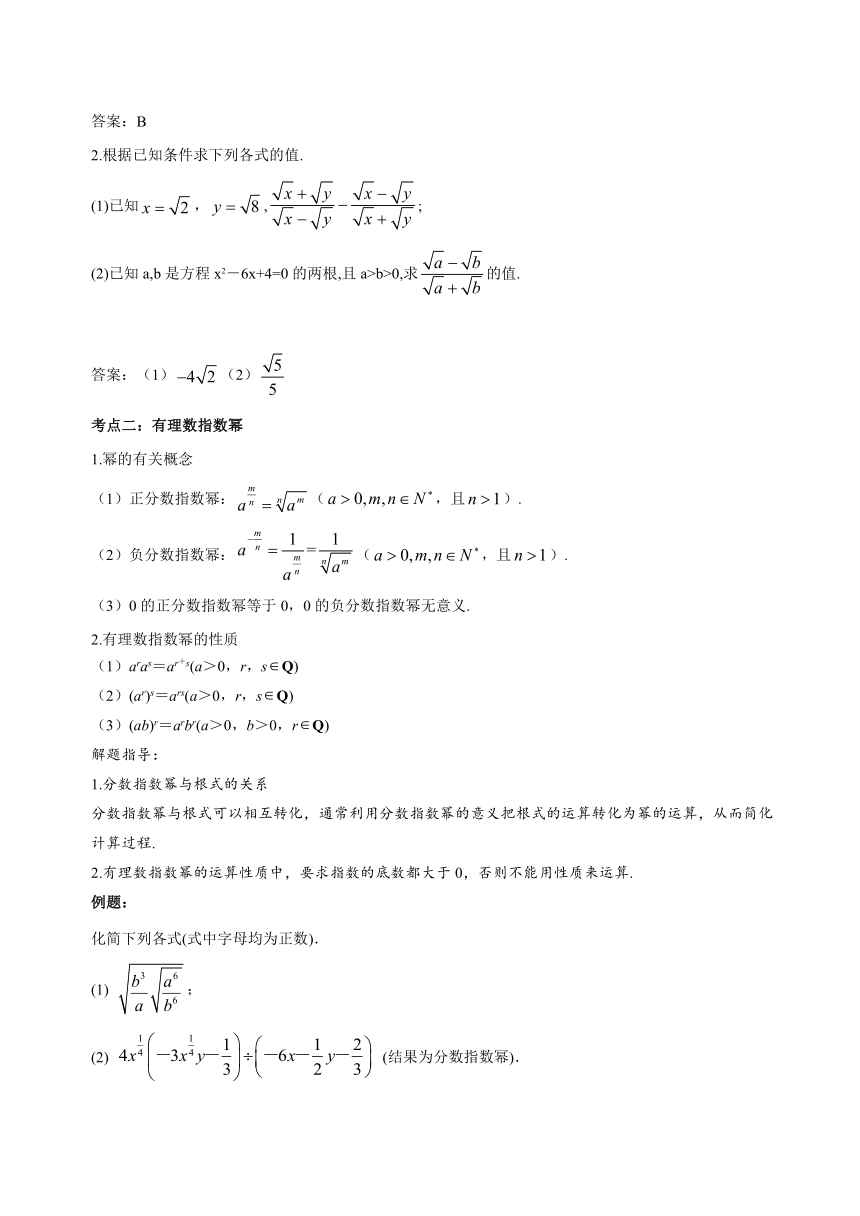 答案：B
2.根据已知条件求下列各式的值.
(1)已知 x = √2 ， y = √8 , (√x + √y)/(√x − √y) − (√x − √y)/(√x + √y) ;
(2)已知 a,b 是方程 x²－6x+4=0 的两根,且 a>b>0,求 (√a − √b)/(√a + √b) 的值.
答案：（1） −4√2 （2） √5/5
考点二：有理数指数幂
1.幂的有关概念
（1）正分数指数幂： a^(m/n) = ⁿ√(a^m) （ a > 0, m, n ∈ N* ，且 n > 1 ）.
（2）负分数指数幂： a^(−m/n) = 1/a^(m/n) = 1/ⁿ√(a^m) （ a > 0, m, n ∈ N* ，且 n > 1 ）.
（3）0 的正分数指数幂等于 0，0 的负分数指数幂无意义.
2.有理数指数幂的性质
（1）aʳaˢ＝aʳ⁺ˢ(a＞0，r，s∈Q)
（2）(aʳ)ˢ＝aʳˢ(a＞0，r，s∈Q)
（3）(ab)ʳ＝aʳbʳ(a＞0，b＞0，r∈Q)
解题指导：
1.分数指数幂与根式的关系
分数指数幂与根式可以相互转化，通常利用分数指数幂的意义把根式的运算转化为幂的运算，从而简化
计算过程.
2.有理数指数幂的运算性质中，要求指数的底数都大于 0，否则不能用性质来运算.
例题：
化简下列各式(式中字母均为正数).
(1) √(b³/a √(a⁶/b⁶)) ；
(2) 4x^(1/4) (－3x^(1/4) y－1/3) ÷ (－6x－1/2 y－2/3) (结果为分数指数幂).